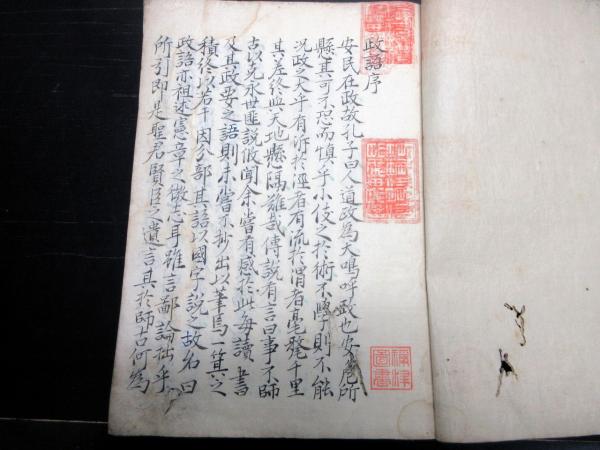 政語序
安民在政故孔子曰人道政為大嗚呼政也安危所
縣其可不恐而慎乎小伎之於術不學則不能
況政之大乎有泝於涇者有流於渭者毫釐千里
其差終與天地懸隔難哉傳說有言曰事不師
古以克永世匪說攸聞余嘗有感於此每讀書
及其政要之語則未嘗不抄出以筆焉一箕之
積終以若干因分部其語以國字說之故名曰
政語亦祖述憲章之微志耳雖言鄙論拙乎
所引即是聖君賢臣之遺言其於師古何為